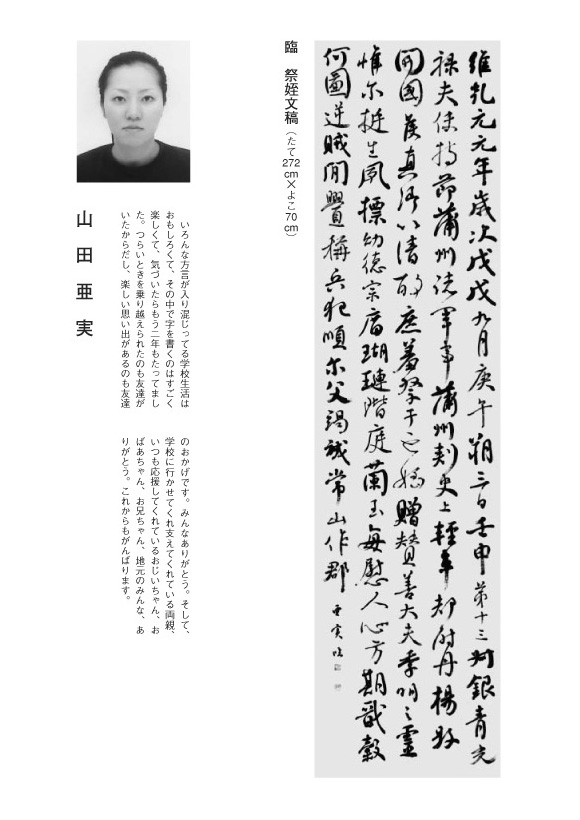 維乾元元年歳次戊戌九月庚午朔三日壬申第十三叔銀青光
禄夫使持節蒲州諸軍事蒲州刺史上輕車都尉丹楊縣
開國侯真卿以清酌庶羞祭于亡姪贈賛善大夫季明之靈
惟尓挺生夙標幼德宗廟瑚璉階庭蘭玉每慰人心方期戩穀
何圖逆賊間釁稱兵犯順尓父竭誠常山作郡 亜実臨
臨 祭姪文稿（たて272cm×よこ70cm）
いろんな方言が入り混じってる学校生活は
おもしろくて、その中で字を書くのはすごく
楽しくて、気づいたらもう二年もたってまし
た。つらいときを乗り越えられたのも友達が
いたからだし、楽しい思い出があるのも友達
のおかげです。みんなありがとう。そして、
学校に行かせてくれ支えてくれている両親、
いつも応援してくれているおじいちゃん、お
ばあちゃん、お兄ちゃん、地元のみんな、あ
りがとう。これからもがんばります。
山田亜実